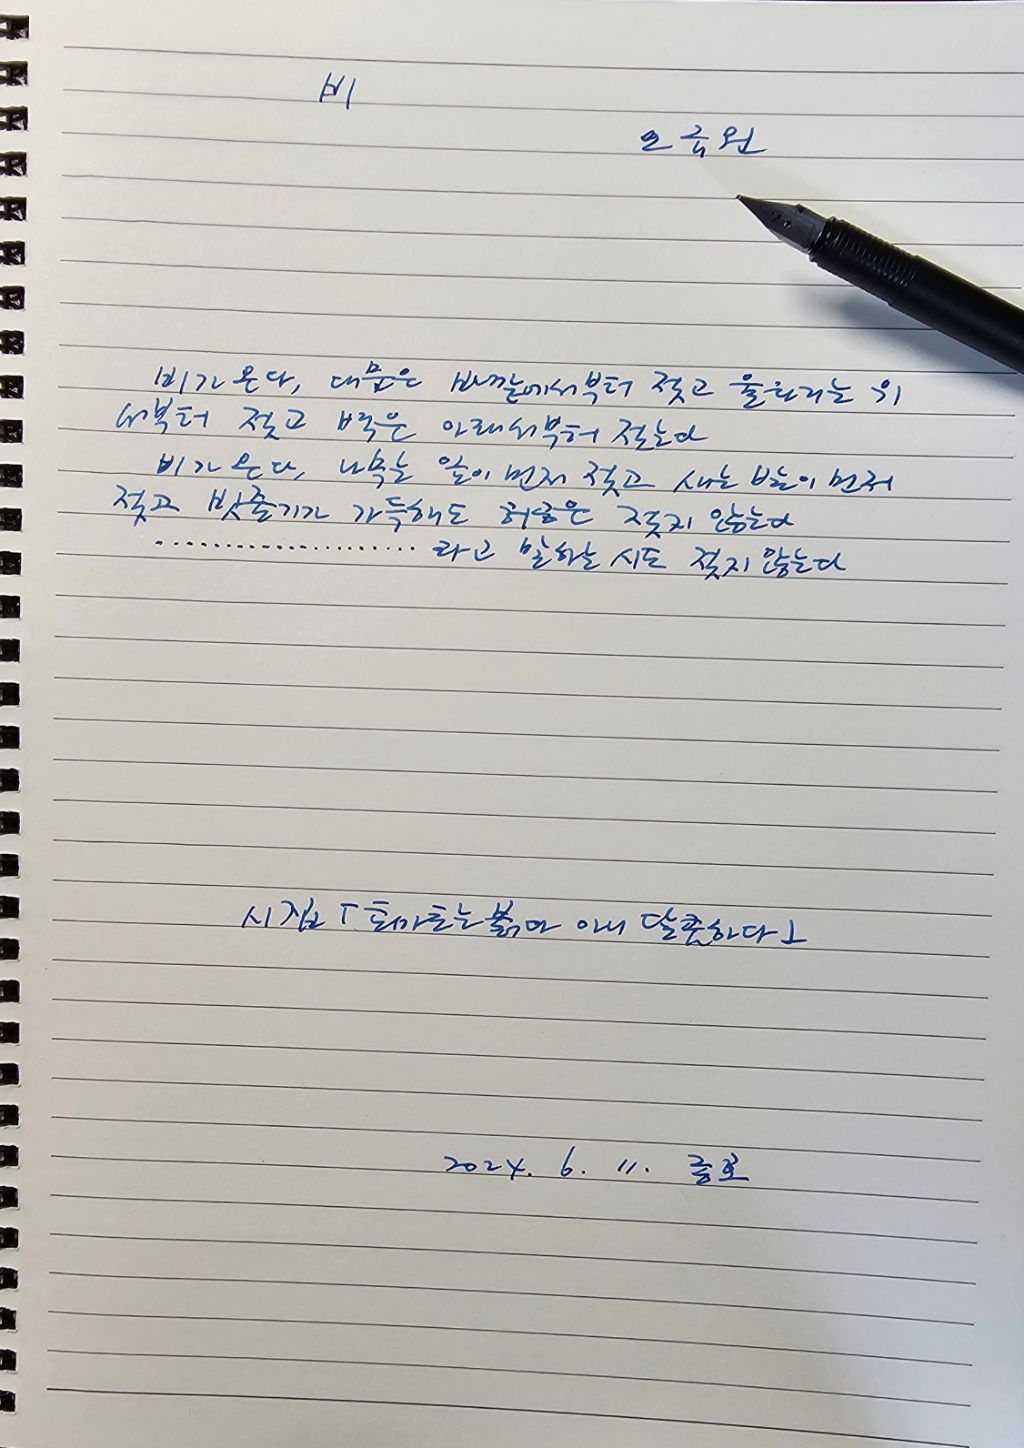 비
오규원
비가 온다, 대문은 바깥에서부터 젖고 울타리는 위
서부터 젖고 벽은 아래서부터 젖는다
비가 온다, 나무는 잎이 먼저 젖고 새는 발이 먼저
젖고 빗줄기가 가득해도 허공은 젖지 않는다
.................... 라고 말하는 시도 젖지 않는다
시집 「토마토는 붉다 아니 달콤하다」
2024. 6. 11.